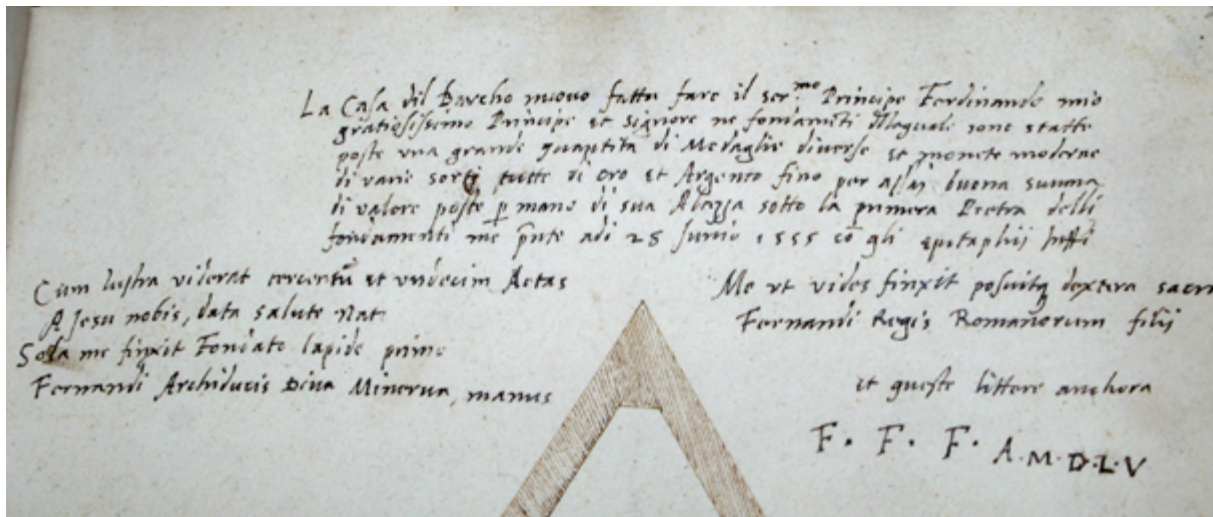 La Casa dil Barcho nuovo fatta fare il ser.mo Principe Ferdinando mio
gratiosissimo Principe et Signore ne fondamēti Illaquale sono statte
poste una grande quaptita di Medaglie diverse et monete moderne
di varie sorti tutte di oro et Argento fino per assaj buona summa
di valore poste p̄ mano di sua Alazza sotto la primera Pietra delli
fondamenti me p̄nte adi 28 Junio 1555 cō gli epitaphii
Cum lustra viderat tercentū et undecim Aetas
A Jesu nobis, data salute Nat:
Sola me finxit Fondato lapide primo
Fernandi Archiducis Diva Minerva, manus
Me ut vides finxit posuitq dextera sacra
Fernandi Regis Romanorum filii
et queste littere anchora
F. F. F. A.M.D.L.V